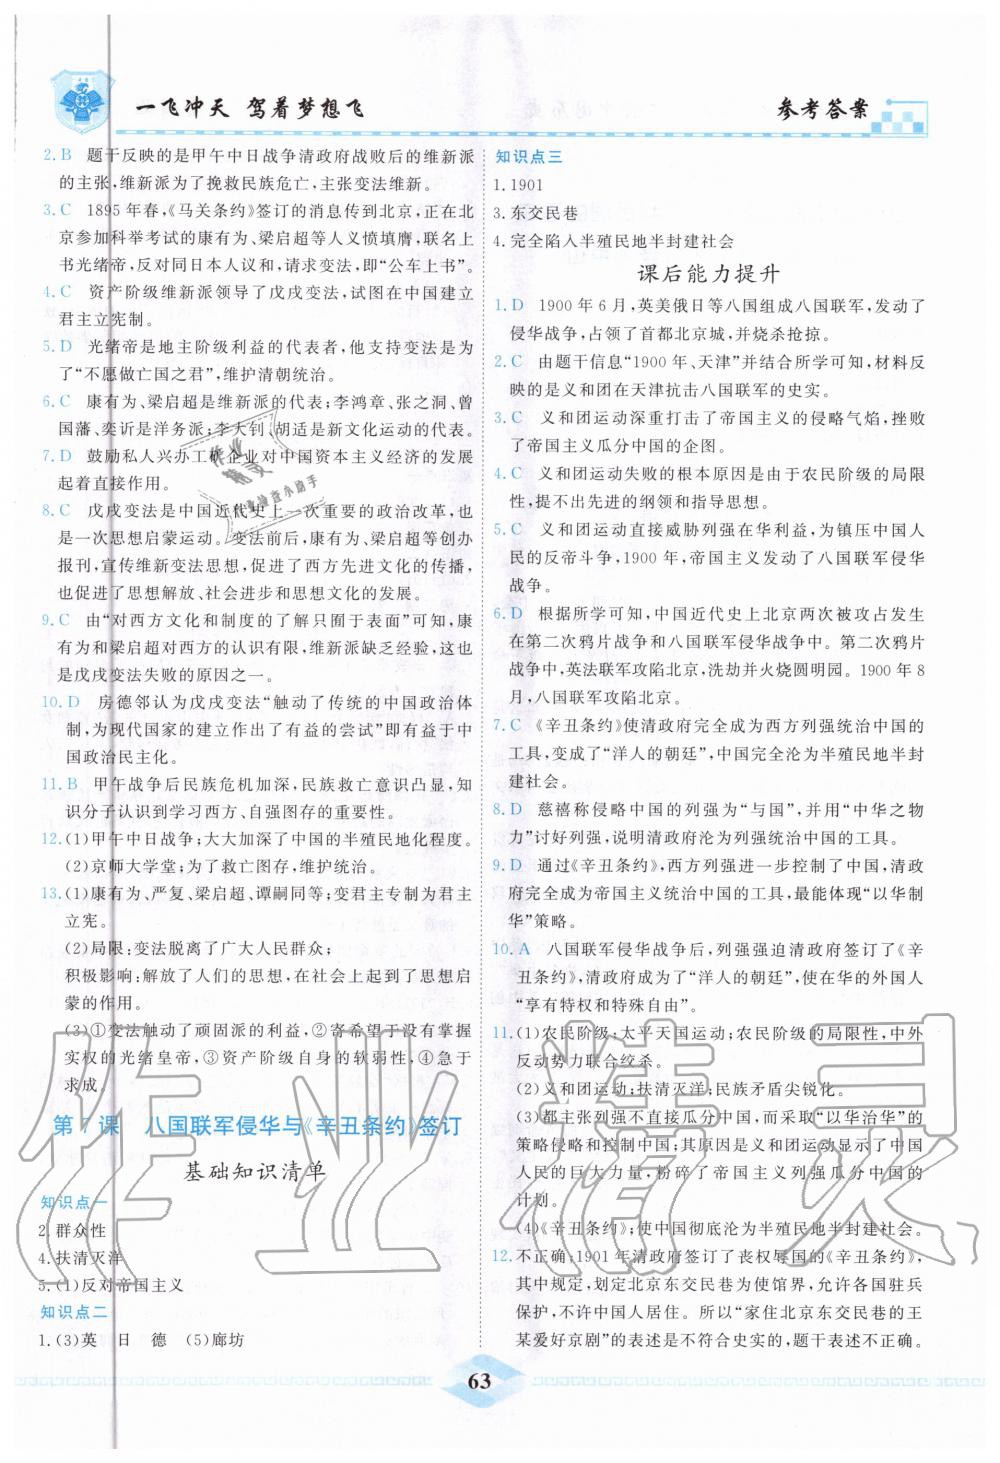 一飞冲天 驾着梦想飞
参考答案
2. B 题干反映的是甲午中日战争清政府战败后的维新派
的主张,维新派为了挽救民族危亡,主张变法维新。
3. C 1895 年春,《马关条约》签订的消息传到北京,正在北
京参加科举考试的康有为、梁启超等人义愤填膺,联名上
书光绪帝,反对同日本人议和,请求变法,即“公车上书”。
4. C 资产阶级维新派领导了戊戌变法,试图在中国建立
君主立宪制。
5. D 光绪帝是地主阶级利益的代表者,他支持变法是为
了“不愿做亡国之君”,维护清朝统治。
6. C 康有为、梁启超是维新派的代表;李鸿章、张之洞、曾
国藩、奕䜣是洋务派;李大钊、胡适是新文化运动的代表。
7. D 鼓励私人兴办工矿企业对中国资本主义经济的发展
起着直接作用。
8. C 戊戌变法是中国近代史上一次重要的政治改革,也
是一次思想启蒙运动。变法前后,康有为、梁启超等创办
报刊,宣传维新变法,促进了西方先进文化的传播,
也促进了思想解放、社会进步和思想文化的发展。
9. C 由“对西方文化和制度的了解只囿于表面”可知,康
有为和梁启超对西方的认识有限,维新派缺乏经验,也
是戊戌变法失败的原因之一。
10. D 房德邻认为戊戌变法“触动了传统的中国政治体
制,为现代国家的建立作出了有益的尝试”即有益于中
国政治民主化。
11. B 甲午战争后民族危机加深,民族救亡意识凸显,知
识分子认识到学习西方、自强图存的重要性。
12. (1)甲午中日战争;大大加深了中国的半殖民地化程度。
(2)京师大学堂;为了救亡图存,维护统治。
13. (1)康有为、严复、梁启超、谭嗣同等;变君主专制为君主
立宪。
(2)局限:变法脱离了广大人民群众;
积极影响:解放了人们的思想,在社会上起到了思想启
蒙的作用。
(3)①变法触动了顽固派的利益,②寄希望于没有掌握
实权的光绪皇帝,③资产阶级自身的软弱性,④急于
求成。
第 7 课 八国联军侵华与《辛丑条约》签订
基础知识清单
知识点一
2. 群众性
4. 扶清灭洋
5. (1)反对帝国主义
知识点二
1. (3)英 日 德 (5)廊坊
知识点三
1. 1901
3. 东交民巷
4. 完全陷入半殖民地半封建社会
课后能力提升
1. D 1900 年 6 月,英美俄日等八国组成八国联军,发动了
侵华战争,占领了首都北京城,并烧杀抢掠。
2. C 由题干信息“1900 年、天津”并结合所学可知,材料反
映的是义和团在天津抗击八国联军的史实。
3. C 义和团运动深重打击了帝国主义的侵略气焰,挫败
了帝国主义瓜分中国的企图。
4. C 义和团运动失败的根本原因是由于农民阶级的局限
性,提不出先进的纲领和指导思想。
5. C 义和团运动直接威胁列强在华利益,为镇压中国人
民的反帝斗争,1900 年,帝国主义发动了八国联军侵华
战争。
6. D 根据所学可知,中国近代史上北京两次被攻占发生
在第二次鸦片战争和八国联军侵华战争中。第二次鸦片
战争中,英法联军攻陷北京,洗劫并火烧圆明园。1900 年 8
月,八国联军攻陷北京。
7. C 《辛丑条约》使清政府完全成为西方列强统治中国的
工具,变成了“洋人的朝廷”,中国完全沦为半殖民地半封
建社会。
8. D 慈禧称侵略中国的列强为“与国”,并用“中华之物
力”讨好列强,说明清政府沦为列强统治中国的工具。
9. D 通过《辛丑条约》,西方列强进一步控制了中国,清政
府完全成为帝国主义统治中国的工具,最能体现“以华制
华”策略。
10. A 八国联军侵华战争后,列强强迫清政府签订了《辛
丑条约》,清政府成为了“洋人的朝廷”,使在华的外国人
“享有特权和特殊自由”。
11. (1)农民阶级;太平天国运动;农民阶级的局限性,中外
反动势力联合绞杀。
(2)义和团运动;扶清灭洋;民族矛盾尖锐化。
(3)都主张列强不直接瓜分中国,而采取“以华治华”的
策略侵略和控制中国;其原因是义和团运动显示了中国
人民的巨大力量,粉碎了帝国主义列强瓜分中国的
计划。
(4)《辛丑条约》;使中国彻底沦为半殖民地半封建社会。
12. 不正确;1901 年清政府签订了丧权辱国的《辛丑条约》,
其中规定,划定北京东交民巷为使馆界,允许各国驻兵
保护,不许中国人居住。所以“家住北京东交民巷的王
某爱好京剧”的表述是不符合史实的,题干表述不正确。
63
作业精灵